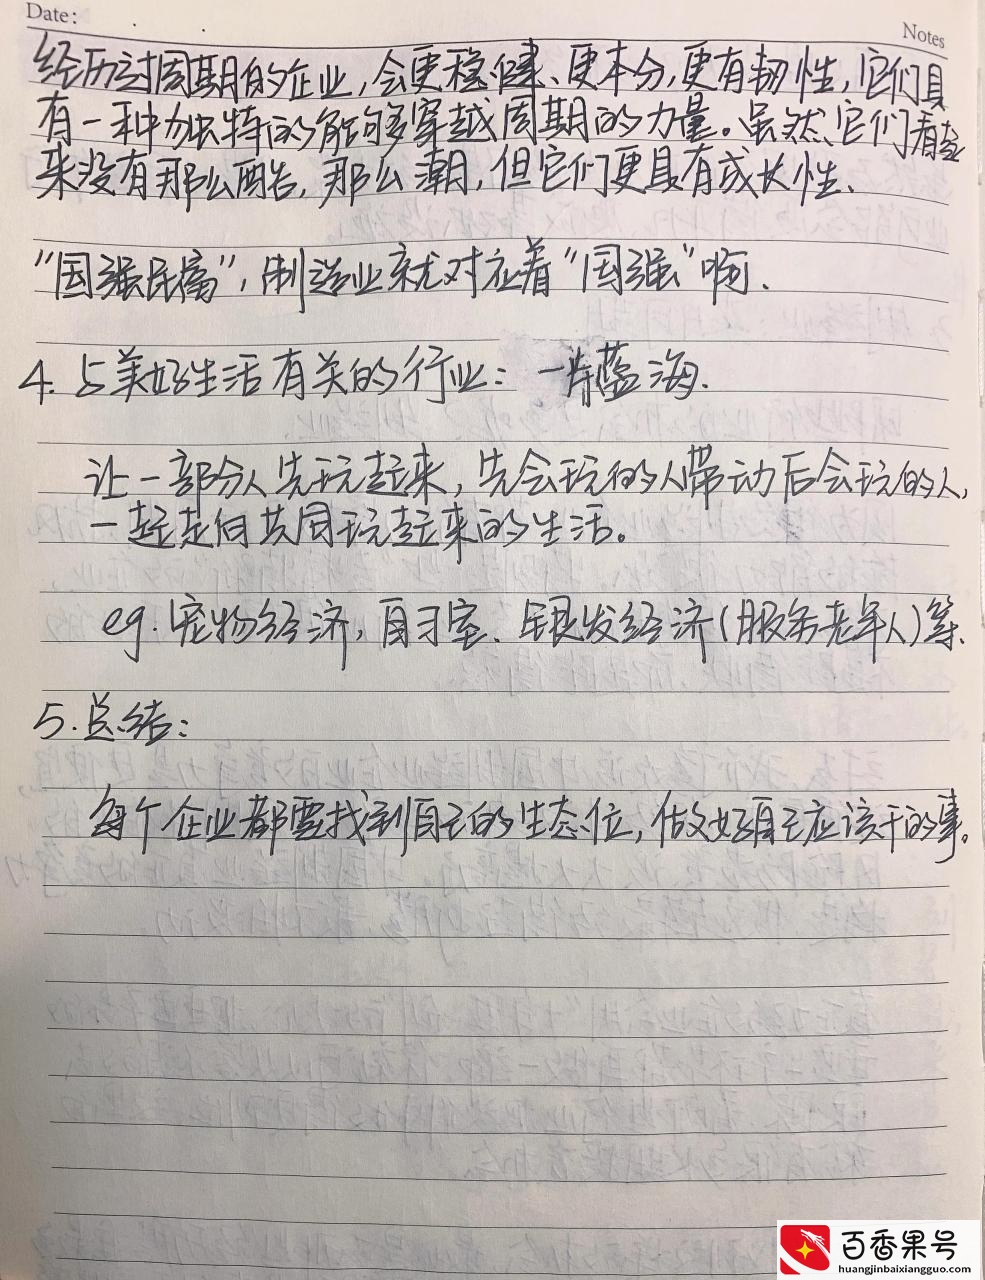 Date:
Notes
经历过周期的企业，会更稳健、更本分，更有韧性，它们具
有一种独特的能够穿越周期的力量。虽然它们看起
来没有那么酷，那么潮，但它们更具有成长性、
“国强民富”，制造业就对应着“国强”啊、
4. 与美好生活有关的行业：一片蓝海、
让一部分人先玩起来，先会玩的人带动后会玩的人，
一起走向共同玩起来的生活。
eg. 宠物经济，自习室、银发经济（服务老年人）等、
5. 总结：
每个企业都要找到自己的生态位，做好自己应该干的事。
百香果号
huangjinbaixiangguo.com